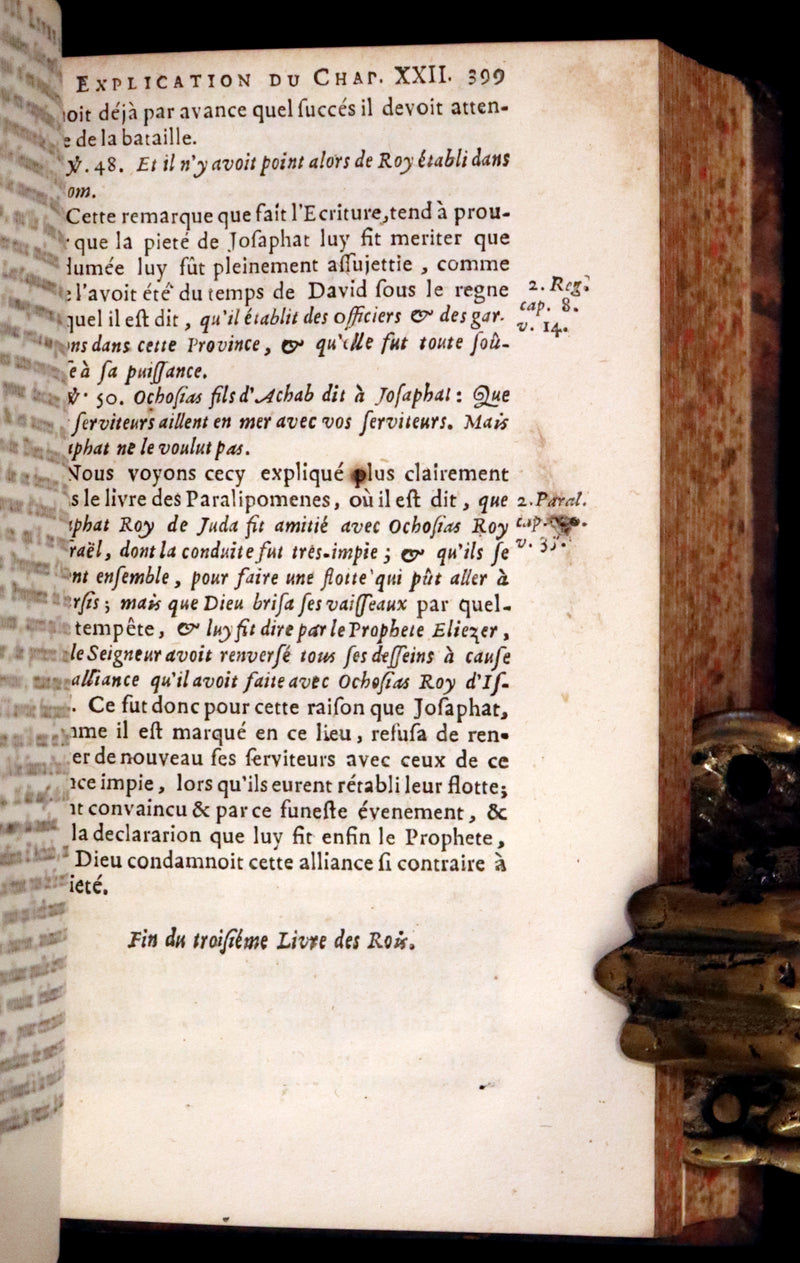 EXPLICATION DU CHAP. XXII. 399
oit déjà par avance quel ſuccés il devoit atten-
e de la bataille.
℣. 48. Et il n'y avoit point alors de Roy établi dans
om.
Cette remarque que fait l'Ecriture, tend à prou-
que la pieté de Joſaphat luy fit meriter que
dumée luy fût pleinement aſſujettie, comme
e l'avoit été du temps de David ſous le regne
2. Reg.
quel il eſt dit, qu'il établit des officiers & des gar-
cap. 8.
ns dans cette Province, & qu'elle fut toute ſoû-
v. 14.
e à ſa puiſſance.
℣. 50. Ochoſias fils d'Achab dit à Joſaphat: Que
ſerviteurs aillent en mer avec vos ſerviteurs. Mais
phat ne le voulut pas.
Nous voyons cecy expliqué plus clairement
s le livre des Paralipomenes, où il eſt dit, que
2. Paral.
phat Roy de Juda fit amitié avec Ochoſias Roy
cap.
raël, dont la conduite fut très-impie; & qu'ils ſe
v. 35.
nt enſemble, pour faire une flotte qui pût aller à
rſis; mais que Dieu briſa ſes vaiſſeaux par quel-
tempête, & luy fit dire par le Prophete Eliezer,
le Seigneur avoit renverſé tous ſes deſſeins à cauſe
alliance qu'il avoit faite avec Ochoſias Roy d'Iſ-
. Ce fut donc pour cette raiſon que Joſaphat,
me il eſt marqué en ce lieu, refuſa de ren-
er de nouveau ſes ſerviteurs avec ceux de ce
nce impie, lors qu'ils eurent rétabli leur flotte;
nt convaincu & par ce funeſte évenement, &
la declararion que luy fit enfin le Prophete,
Dieu condamnoit cette alliance ſi contraire à
ieté.
Fin du troiſiéme Livre des Rois.